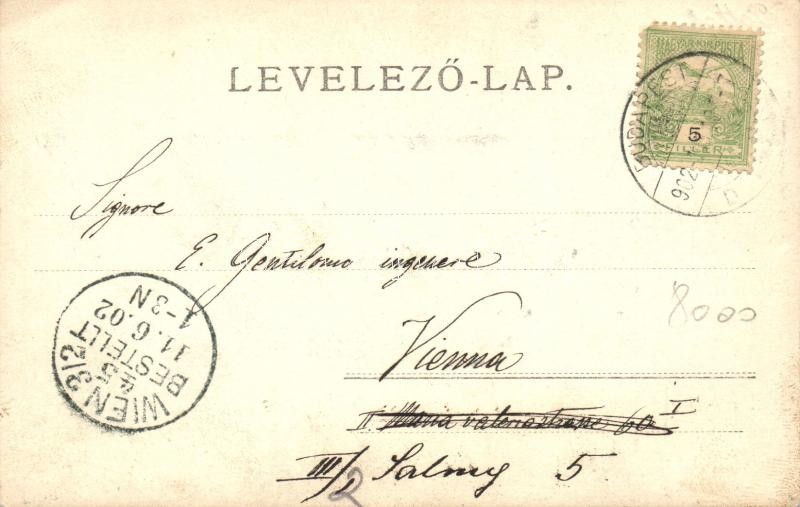 LEVELEZŐ-LAP.
MAGYAR KIR. POSTA
5
FILLÉR
BUDAPEST
902
D
Signore
E. Gentilomo ingenere
Vienna
II. Maria valeriastrasse 60 I
III/2 Salmg 5
8000
WIEN 3/2
45
BESTELLT
11.6.02
1-3N